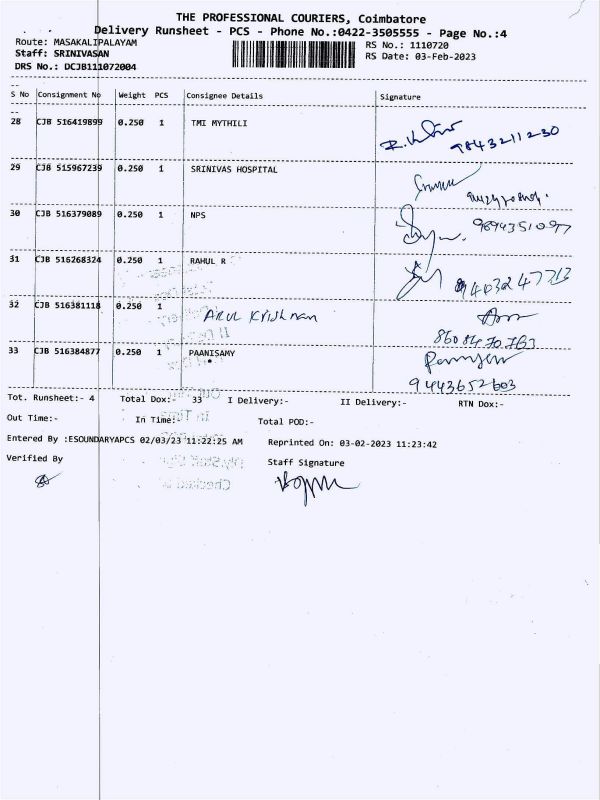 THE PROFESSIONAL COURIERS, Coimbatore
Delivery Runsheet - PCS - Phone No.:0422-3505555 - Page No.:4
Route: MASAKALIPALAYAM RS No.: 1110720
Staff: SRINIVASAN RS Date: 03-Feb-2023
DRS No.: DCJB111072004
S No Consignment No Weight PCS Consignee Details Signature
28 CJB 516419899 0.250 1 TMI MYTHILI
9843211230
29 CJB 515967239 0.250 1 SRINIVAS HOSPITAL
30 CJB 516379089 0.250 1 NPS
9894351097
31 CJB 516268324 0.250 1 RAHUL R
9403247713
32 CJB 516381118 0.250 1 Arul Krishnan
8608470763
33 CJB 516384877 0.250 1 PAANISAMY
9443652603
Tot. Runsheet:- 4 Total Dox:- 33 I Delivery:- II Delivery:- RTN Dox:-
Out Time:- In Time:- Total POD:-
Entered By :ESOUNDARYAPCS 02/03/23 11:22:25 AM Reprinted On: 03-02-2023 11:23:42
Verified By Staff Signature